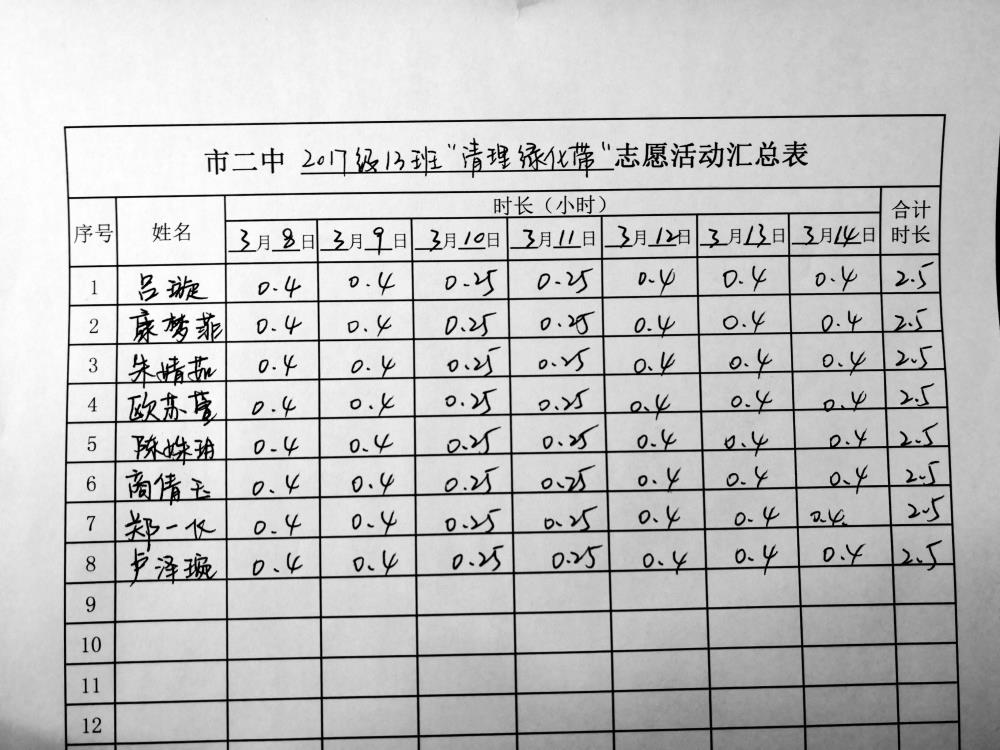 市二中 2017级13班"清理绿化带"志愿活动汇总表
序号 姓名 时长（小时） 合计时长
3月8日 3月9日 3月10日 3月11日 3月12日 3月13日 3月14日
1 吕璇 0.4 0.4 0.25 0.25 0.4 0.4 0.4 2.5
2 康梦菲 0.4 0.4 0.25 0.25 0.4 0.4 0.4 2.5
3 朱婧茹 0.4 0.4 0.25 0.25 0.4 0.4 0.4 2.5
4 欧苏萱 0.4 0.4 0.25 0.25 0.4 0.4 0.4 2.5
5 陈姝玥 0.4 0.4 0.25 0.25 0.4 0.4 0.4 2.5
6 商倩玉 0.4 0.4 0.25 0.25 0.4 0.4 0.4 2.5
7 郑一 0.4 0.4 0.25 0.25 0.4 0.4 0.4 2.5
8 卢泽琬 0.4 0.4 0.25 0.25 0.4 0.4 0.4 2.5
9
10
11
12